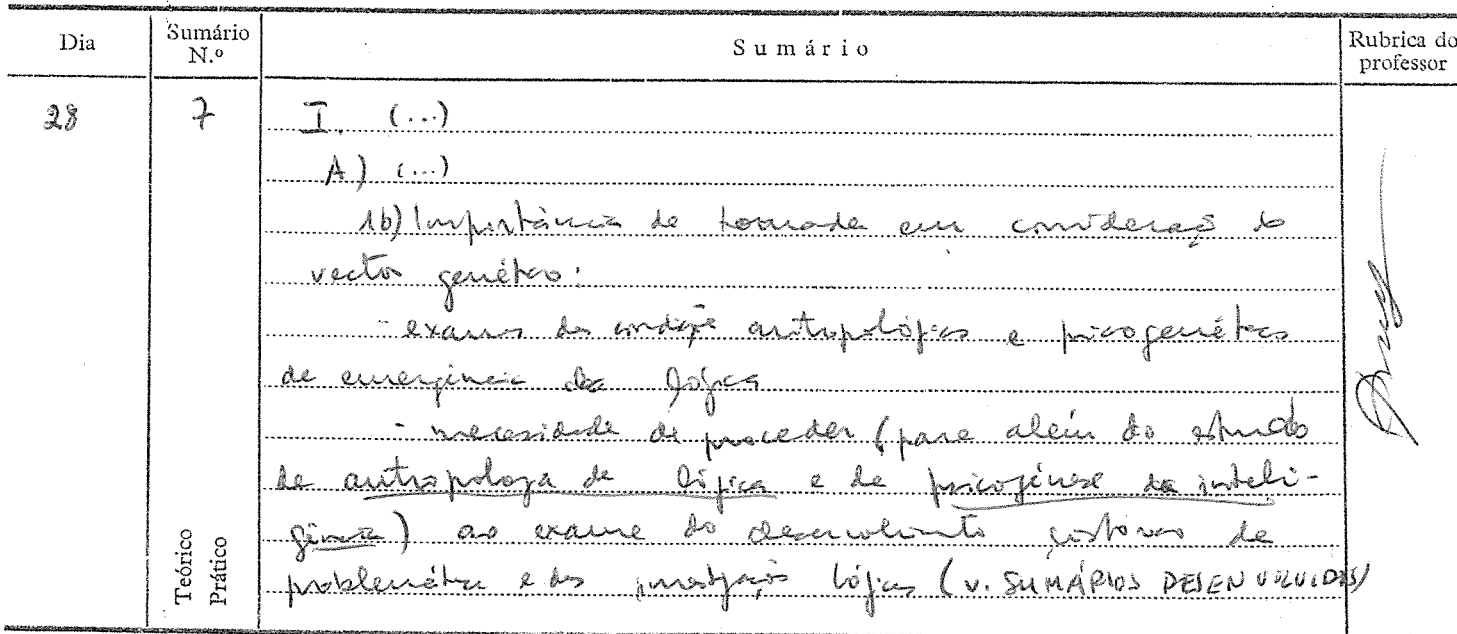 Dia
Sumário N.º
Sumário
Rubrica do professor
28
7
I. (...)
A) (...)
1b) Importância da tomada em consideração do
vector genético:
- exame das condições antropológicas e psicogenéticas
de emergência da lógica
- necessidade de proceder (para além do estudo
da antropologia da lógica e da psicogénese da inteli-
gência) ao exame do desenvolvimento histórico da
problemática e das investigações lógicas (v. SUMÁRIOS DESENVOLVIDOS)
Teórico
Prático